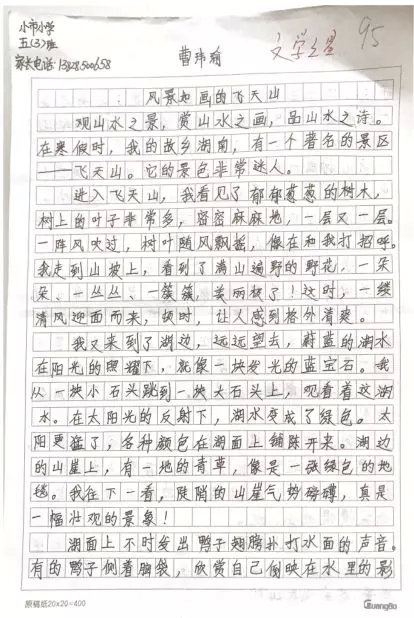 小市小学
五(3)班
家长电话:13828500658
曹玮翰
文学之星
95
风景如画的飞天山
观山水之景,赏山水之画,品山水之诗。
在寒假时,我的故乡湖南,有一个著名的景区
——飞天山。它的景色非常迷人。
进入飞天山,我看见了郁郁葱葱的树木,
树上的叶子非常多,密密麻麻地,一层又一层。
一阵风吹过,树叶随风飘摇,像在和我打招呼。
我走到山坡上,看到了满山遍野的野花,一朵
朵、一丛丛、一簇簇,美丽极了!这时,一缕
清风迎面而来,顿时,让人感到格外清爽。
我又来到了湖边,远远望去,蔚蓝的湖水
在阳光的照耀下,就像一块发光的蓝宝石。我
从一块小石头跳到一块大石头上,观看着这湖
水。在太阳光的反射下,湖水变成了绿色。太
阳更猛了,各种颜色在湖面上铺陈开来。湖边
的山崖上,有一地的青草,像是一张绿色的地
毯。我往下一看,陡峭的山崖气势磅礴,真是
一幅壮观的景象!
湖面上不时发出鸭子翅膀扑打水面的声音。
有的鸭子侧着脑袋,欣赏自己倒映在水里的影
原稿纸20×20=400
GuangBo